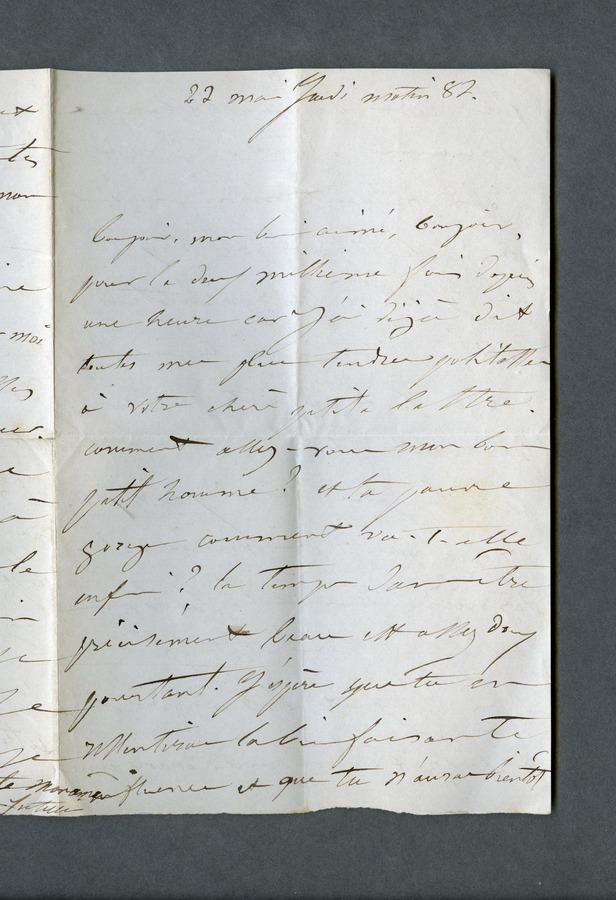 22 mai Jeudi matin 8h.
bonjour, mon bien aimé, bonjour,
pour la deux millième fois depuis
une heure car j'ai déjà dit
toutes mes plus tendres
à votre chère petite lettre.
comment allez-vous mon bon
petit homme ? et ta pauvre
gorge comment va-t-elle
enfin ? le temps sans être
précisément beau est assez doux
pourtant. J'espère que tu en
ressentiras la bienfaisante
influence et que tu n'auras bientôt